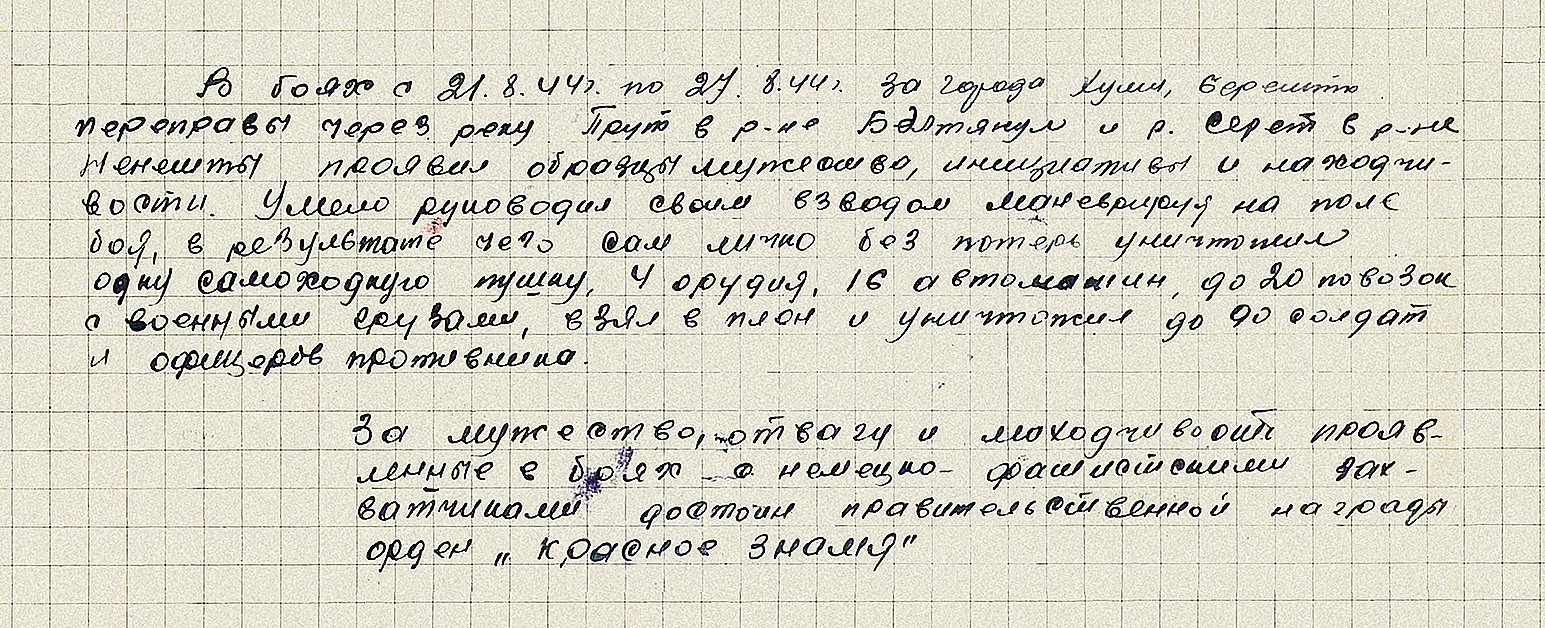 В боях с 21.8.44г. по 27.8.44г. за города Хуши, Берешти
переправы через реку Прут в р-не Бэлтянул и р. Серет в р-не
Ненешты проявил образцы мужества, инициативы и находчи-
вости. Умело руководил своим взводом маневрируя на поле
боя, в результате чего сам лично без потерь уничтожил
одну самоходную пушку, 4 орудия, 16 автомашин, до 20 повозок
с военными грузами, взял в плен и уничтожил до 90 солдат
и офицеров противника.
За мужество, отвагу и находчивость прояв-
ленные в боях с немецко-фашистскими зах-
ватчиками достоин правительственной награды
орден „Красное Знамя"